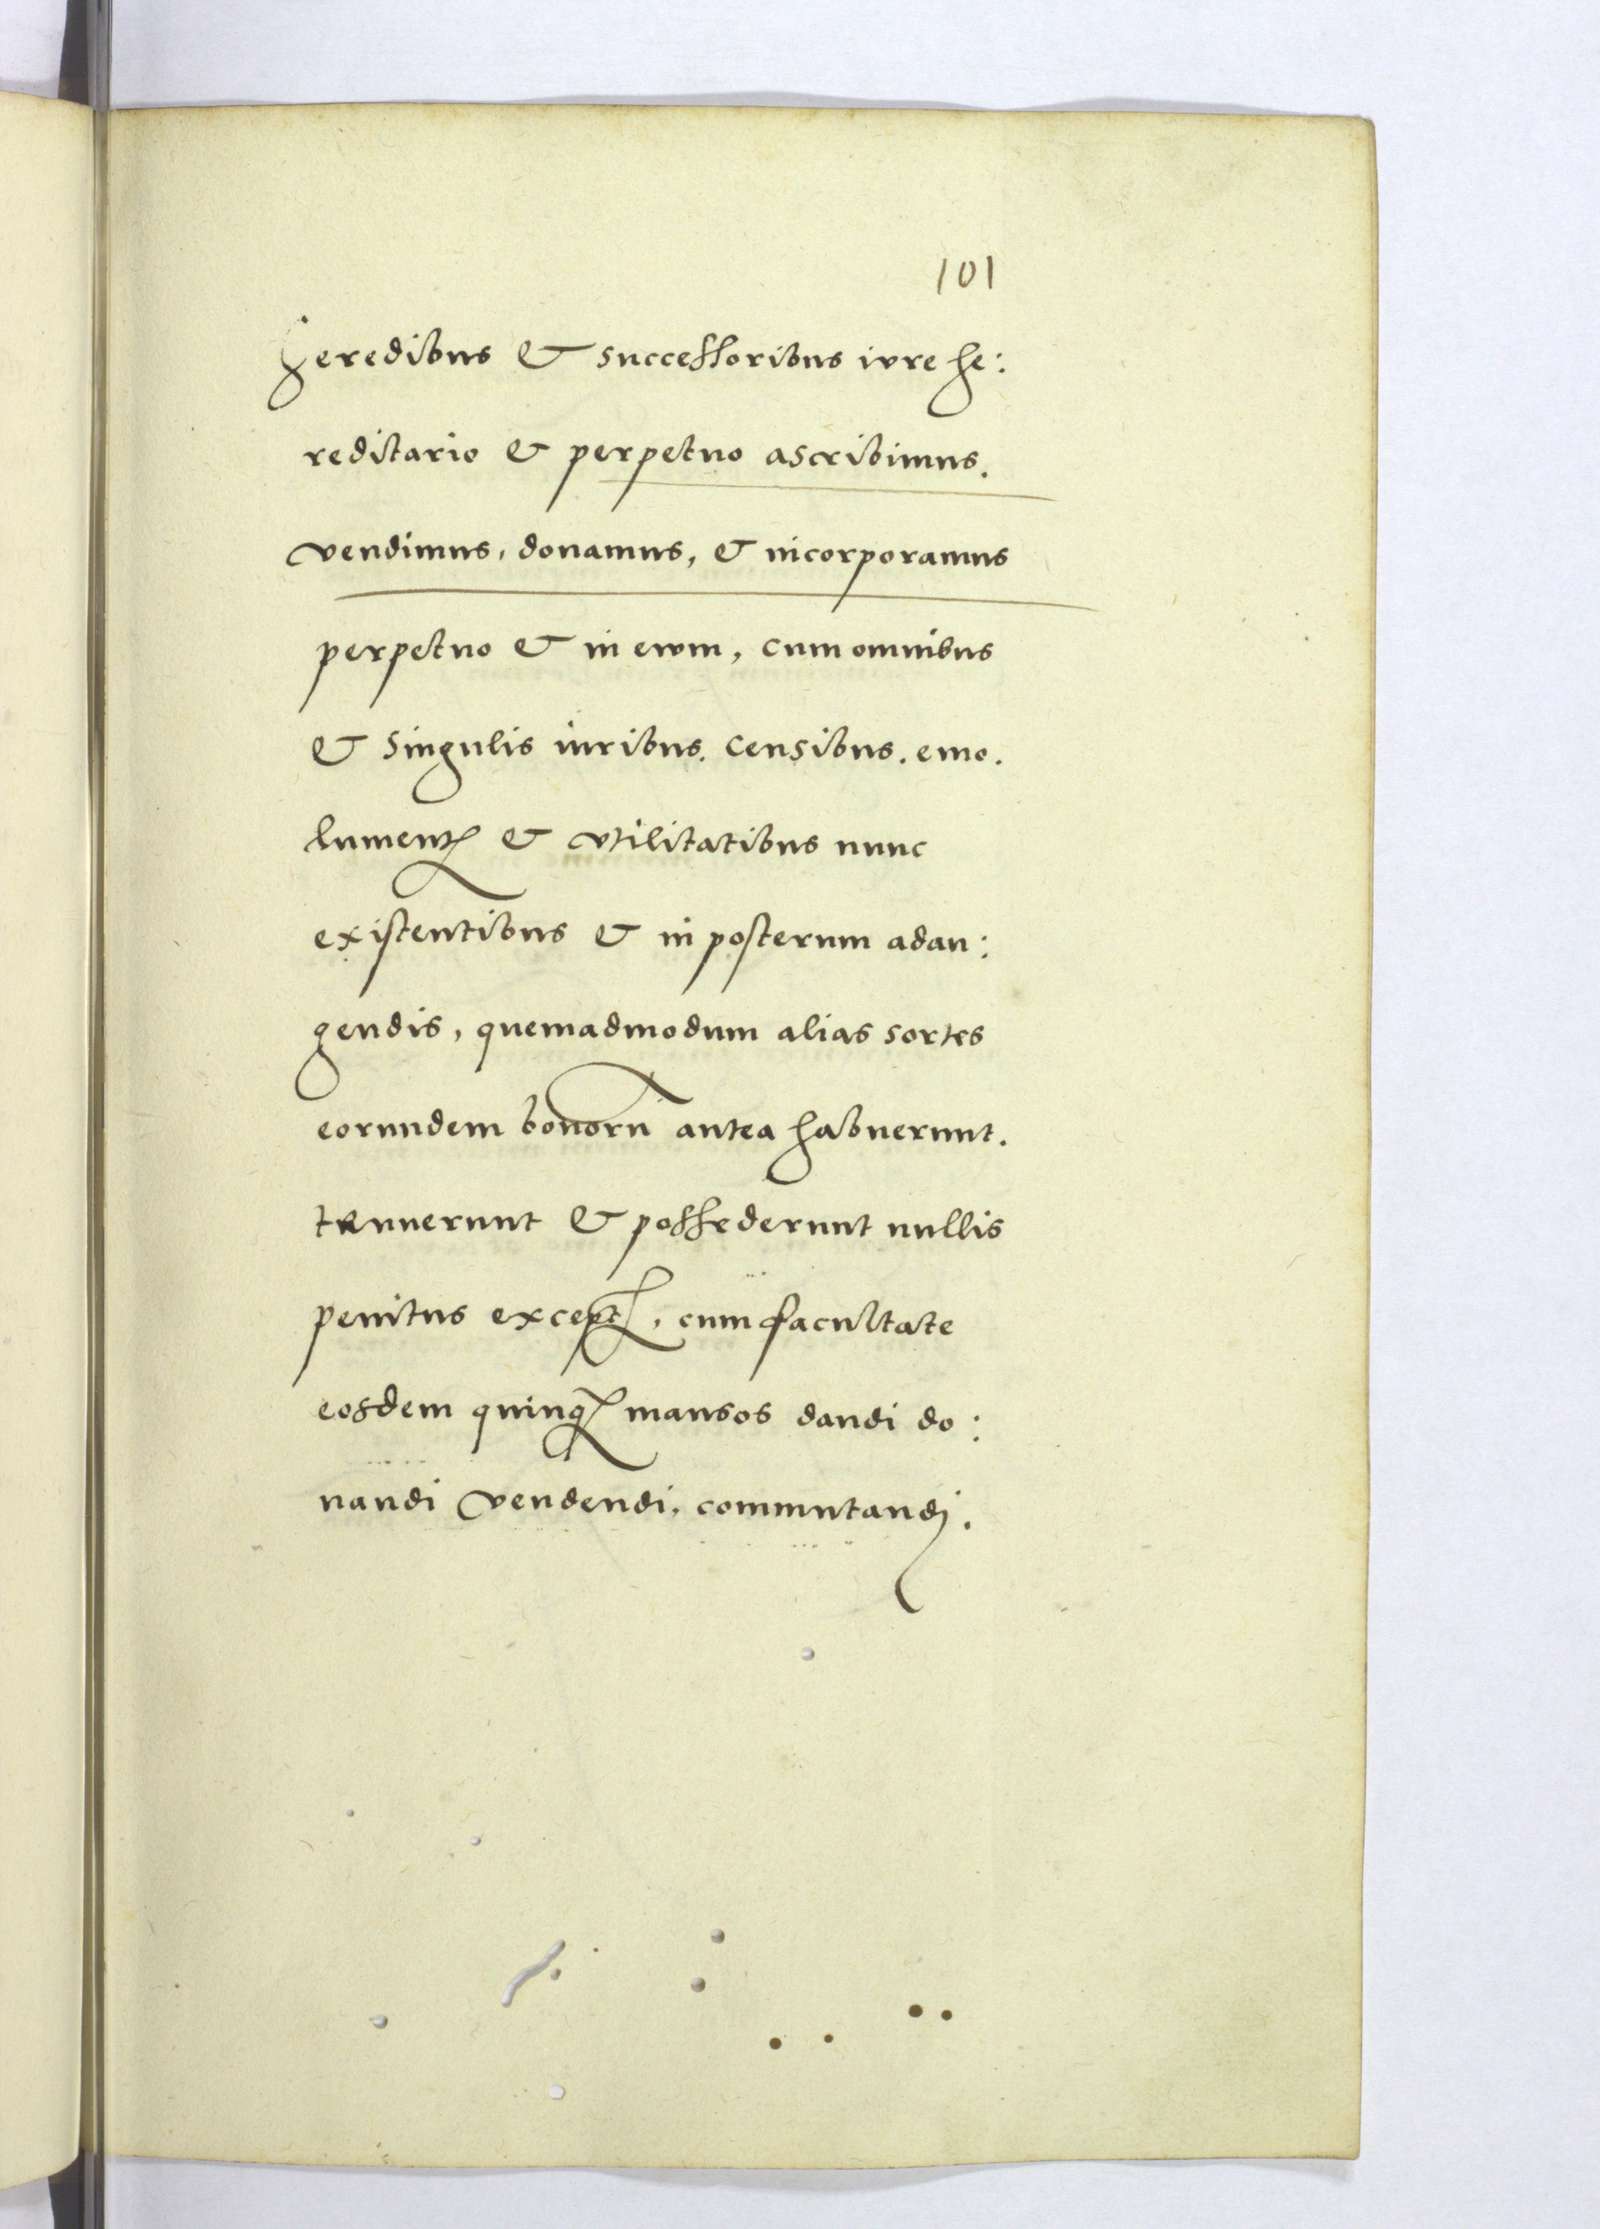 101
heredibus & successoribus iure he:
reditario & perpetuo ascribimus.
vendimus, donamus, & incorporamus
perpetuo & in ewm, cum omnibus
& singulis iuribus. censibus. emo.
lumentꝭ & vtilitatibus nunc
existentibus & in posterum adau:
gendis, quemadmodum alias sortes
eorundem bonorū antea habuerunt.
tenuerunt & possederunt nullis
penitus exceptꝭ, cum facultate
eosdem quinqꝫ mansos dandi do:
nandi vendendi, commutandj.